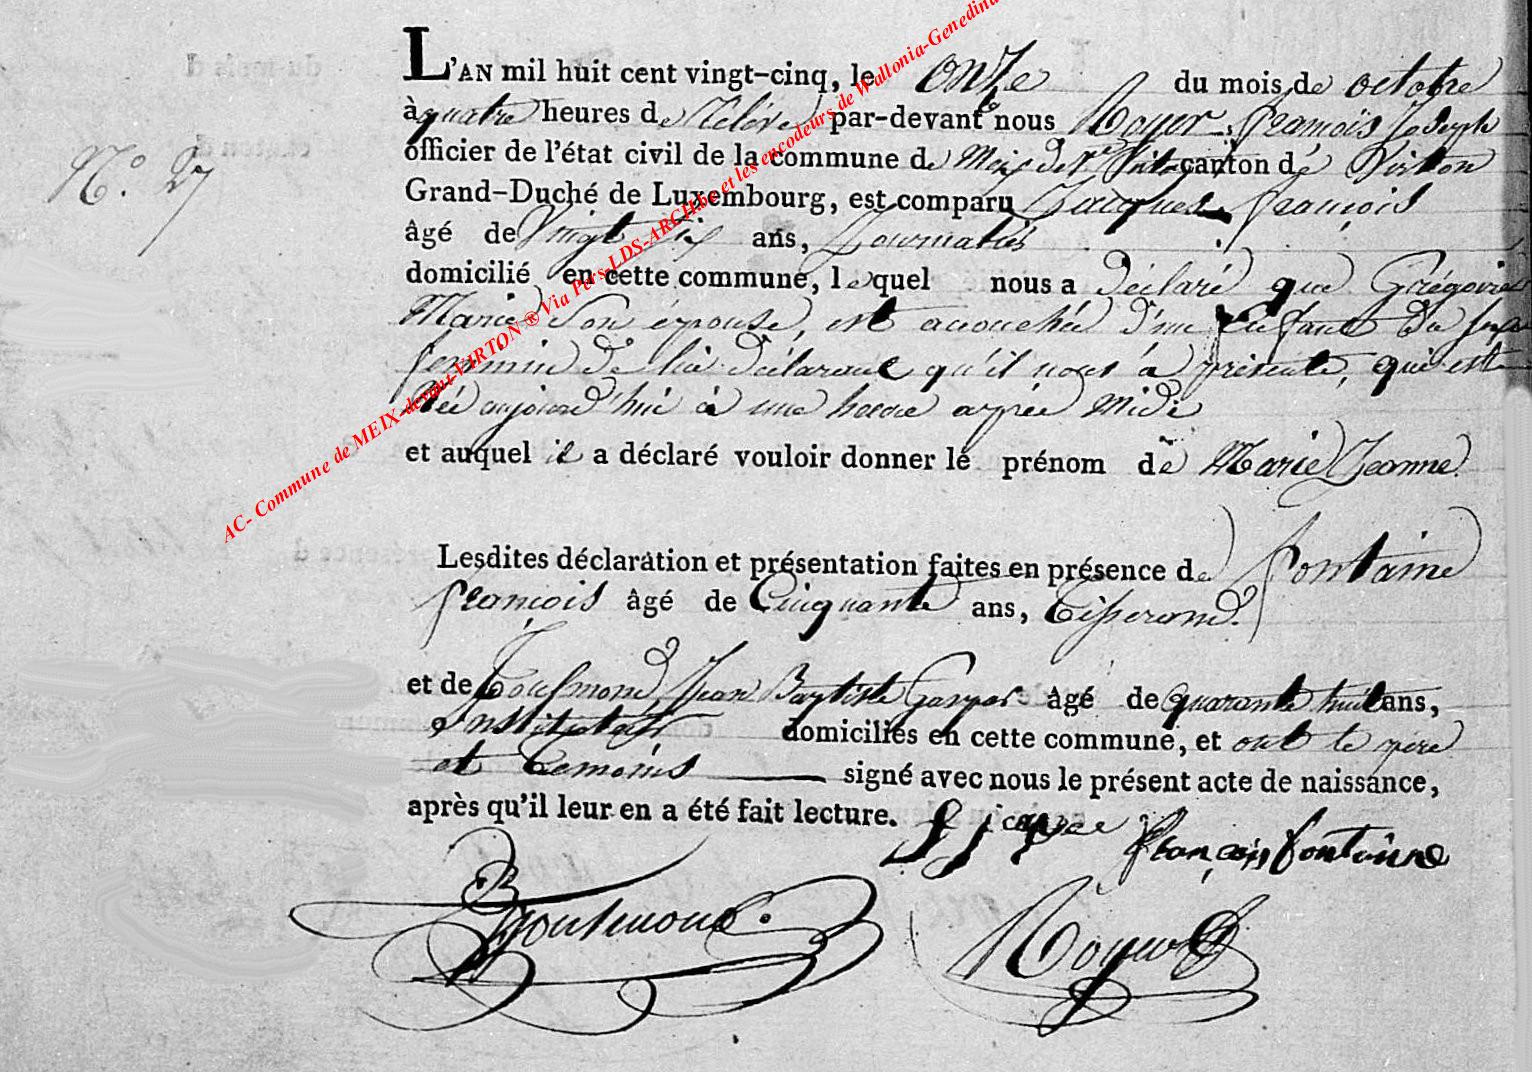 L'AN mil huit cent vingt-cinq, le onze du mois de octobre
à quatre heures de relévé par-devant nous Noyer, françois Joseph
officier de l'état civil de la commune de Meix devt Virton canton de Virton
N.° 27
Grand-Duché de Luxembourg, est comparu Jacques françois
âgé de Vingt six ans, Journalier
domicilié en cette commune, lequel nous a déclaré que Grégoire
Marie Son épouse, est accouchée d'un Enfant du sexe
feminin de lui déclarant qu'il nous à présenté, qui est
Née aujourd'hui à une heure après midi
et auquel il a déclaré vouloir donner le prénom de Marie Jeanne
Lesdites déclaration et présentation faites en présence de fontaine
françois âgé de Cinquante ans, Tisserand.
et de Jean Baptiste Gaspar âgé de quarante huit ans,
Instituteur domiciliés en cette commune, et ont le père
et temoins signé avec nous le présent acte de naissance,
après qu'il leur en a été fait lecture.
françois fontaine
Noyer
AC- Commune de MEIX-devant-VIRTON ® Via Pers-LDS-ARCH.be et les encodeurs de Wallonia-Genedina